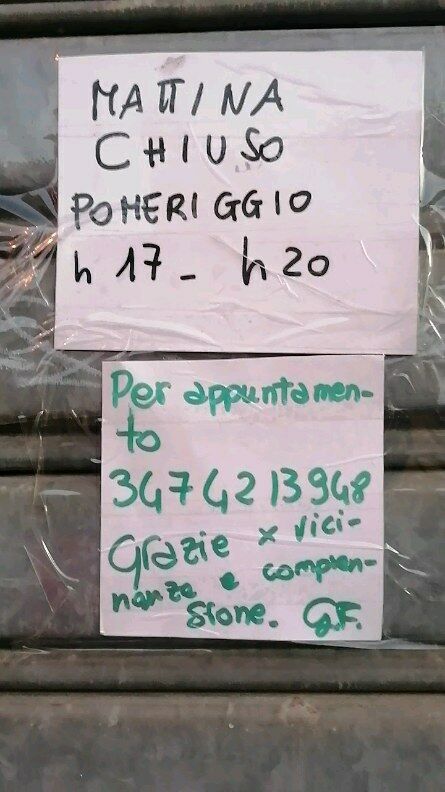 MATTINA
CHIUSO
POMERIGGIO
h 17 - h 20
Per appuntamen-
to
3474213948
Grazie x vici-
nanze e compren-
sione. G.F.